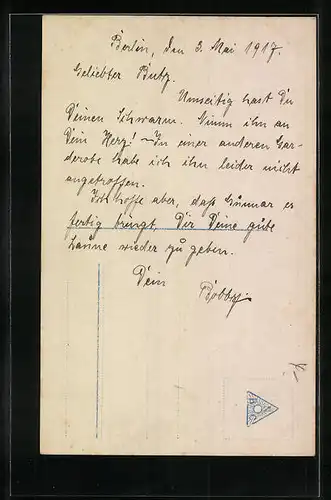 Berlin, den 3. Mai 1917.
Geliebter Butz.
Umseitig hast Du
Deinen Schwarm. Nimm ihn an
Dein Herz! – In einer anderen Gar-
derobe habe ich ihn leider nicht
angetroffen.
Ich hoffe aber, daß Gunnar es
fertig bringt Dir Deine gute
Laune wieder zu geben.
Dein
Bobby.